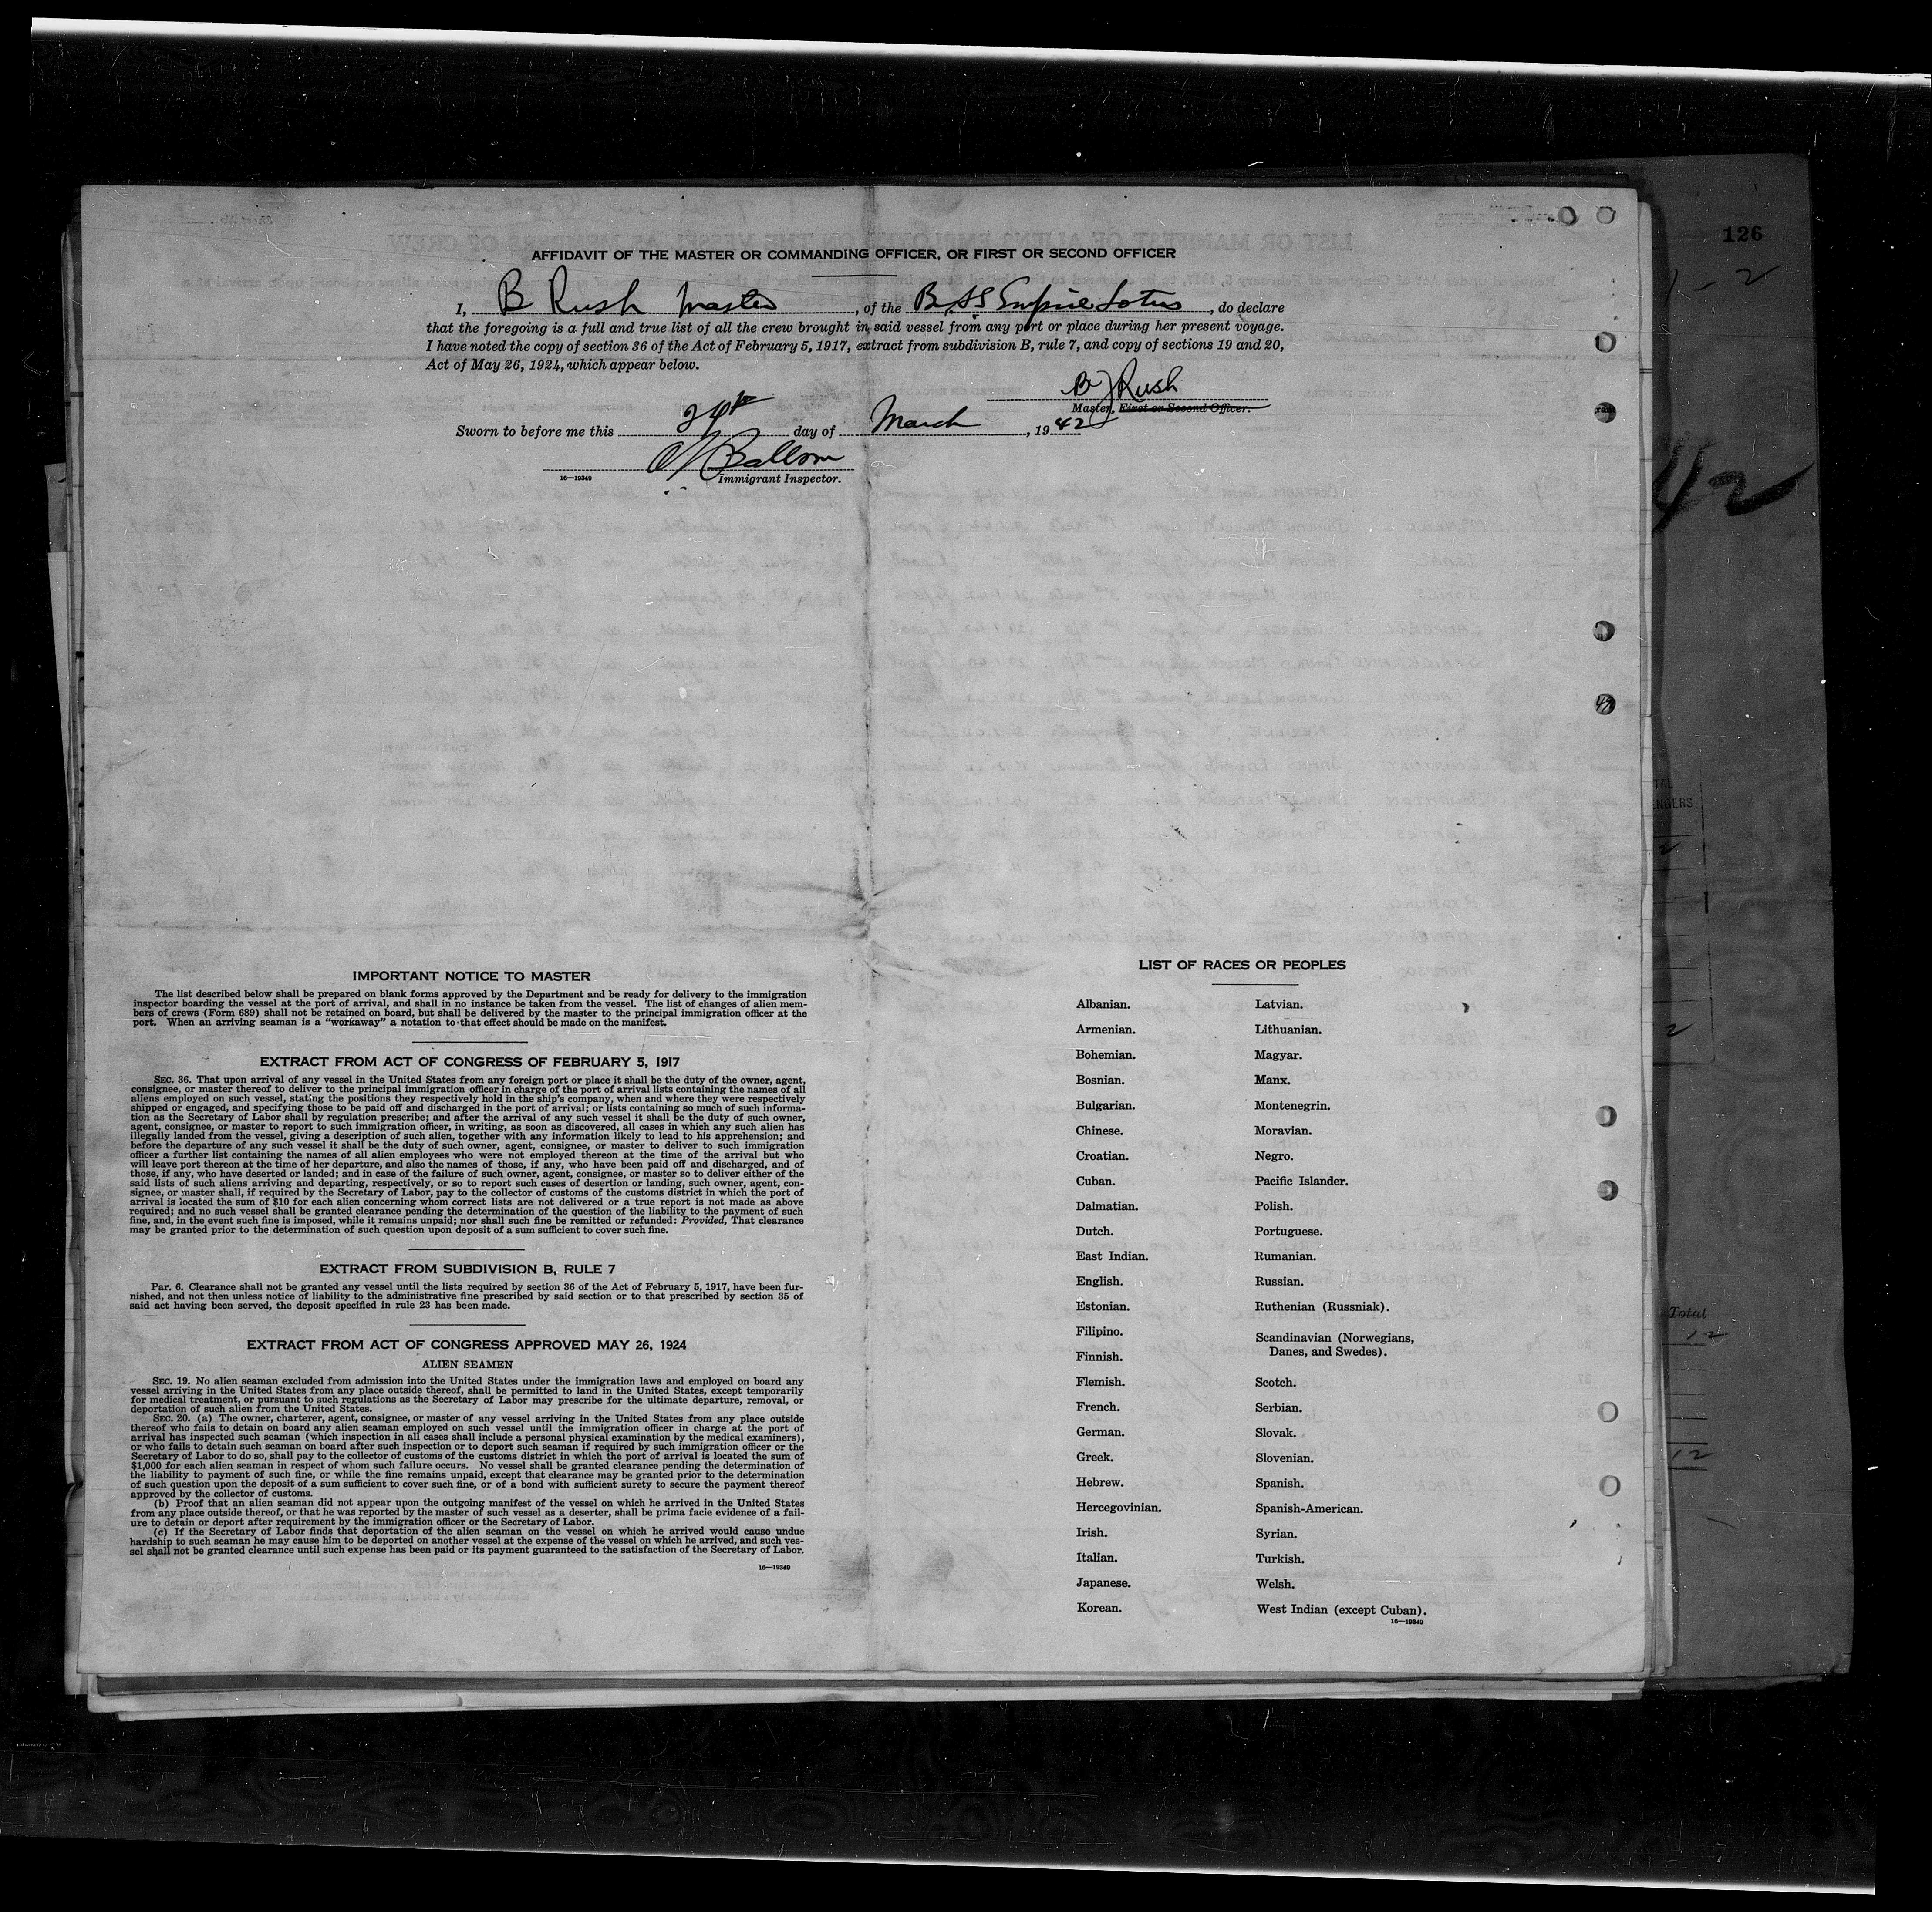 126
AFFIDAVIT OF THE MASTER OR COMMANDING OFFICER, OR FIRST OR SECOND OFFICER
I, B Rush Master, of the Br SS Empire Lotus, do declare
that the foregoing is a full and true list of all the crew brought in said vessel from any port or place during her present voyage.
I have noted the copy of section 36 of the Act of February 5, 1917, extract from subdivision B, rule 7, and copy of sections 19 and 20,
Act of May 26, 1924, which appear below.
B J Rush
Master, First or Second Officer.
Sworn to before me this 24th day of March, 1942
16—19349 Immigrant Inspector.
42
IMPORTANT NOTICE TO MASTER
The list described below shall be prepared on blank forms approved by the Department and be ready for delivery to the immigration
inspector boarding the vessel at the port of arrival, and shall in no instance be taken from the vessel. The list of changes of alien mem-
bers of crews (Form 689) shall not be retained on board, but shall be delivered by the master to the principal immigration officer at the
port. When an arriving seaman is a "workaway" a notation to that effect should be made on the manifest.
EXTRACT FROM ACT OF CONGRESS OF FEBRUARY 5, 1917
SEC. 36. That upon arrival of any vessel in the United States from any foreign port or place it shall be the duty of the owner, agent,
consignee, or master thereof to deliver to the principal immigration officer in charge of the port of arrival lists containing the names of all
aliens employed on such vessel, stating the positions they respectively hold in the ship's company, when and where they were respectively
shipped or engaged, and specifying those to be paid off and discharged in the port of arrival; or lists containing so much of such informa-
tion as the Secretary of Labor shall by regulation prescribe; and after the arrival of any such vessel it shall be the duty of such owner,
agent, consignee, or master to report to such immigration officer, in writing, as soon as discovered, all cases in which any such alien has
illegally landed from the vessel, giving a description of such alien, together with any information likely to lead to his apprehension; and
before the departure of any such vessel it shall be the duty of such owner, agent, consignee, or master to deliver to such immigration
officer a further list containing the names of all alien employees who were not employed thereon at the time of the arrival but who
will leave port thereon at the time of her departure, and also the names of those, if any, who have been paid off and discharged, and of
those, if any, who have deserted or landed; and in case of the failure of such owner, agent, consignee, or master so to deliver either of the
said lists of such aliens arriving and departing, respectively, or so to report such cases of desertion or landing, such owner, agent, con-
signee, or master shall, if required by the Secretary of Labor, pay to the collector of customs of the customs district in which the port of
arrival is located the sum of $10 for each alien concerning whom correct lists are not delivered or a true report is not made as above
required; and no such vessel shall be granted clearance pending the determination of the question of the liability to the payment of such
fine, and, in the event such fine is imposed, while it remains unpaid; nor shall such fine be remitted or refunded: Provided, That clearance
may be granted prior to the determination of such question upon deposit of a sum sufficient to cover such fine.
EXTRACT FROM SUBDIVISION B, RULE 7
Par. 6. Clearance shall not be granted any vessel until the lists required by section 36 of the Act of February 5, 1917, have been fur-
nished, and not then unless notice of liability to the administrative fine prescribed by said section or to that prescribed by section 35 of
said act having been served, the deposit specified in rule 23 has been made.
EXTRACT FROM ACT OF CONGRESS APPROVED MAY 26, 1924
ALIEN SEAMEN
SEC. 19. No alien seaman excluded from admission into the United States under the immigration laws and employed on board any
vessel arriving in the United States from any place outside thereof, shall be permitted to land in the United States, except temporarily
for medical treatment, or pursuant to such regulations as the Secretary of Labor may prescribe for the ultimate departure, removal, or
deportation of such alien from the United States.
SEC. 20. (a) The owner, charterer, agent, consignee, or master of any vessel arriving in the United States from any place outside
thereof who fails to detain on board any alien seaman employed on such vessel until the immigration officer in charge at the port of
arrival has inspected such seaman (which inspection in all cases shall include a personal physical examination by the medical examiners),
or who fails to detain such seaman on board after such inspection or to deport such seaman if required by such immigration officer or the
Secretary of Labor to do so, shall pay to the collector of customs of the customs district in which the port of arrival is located the sum of
$1,000 for each alien seaman in respect of whom such failure occurs. No vessel shall be granted clearance pending the determination of
the liability to payment of such fine, or while the fine remains unpaid, except that clearance may be granted prior to the determination
of such question upon the deposit of a sum sufficient to cover such fine, or of a bond with sufficient surety to secure the payment thereof
approved by the collector of customs.
(b) Proof that an alien seaman did not appear upon the outgoing manifest of the vessel on which he arrived in the United States
from any place outside thereof, or that he was reported by the master of such vessel as a deserter, shall be prima facie evidence of a fail-
ure to detain or deport after requirement by the immigration officer or the Secretary of Labor.
(c) If the Secretary of Labor finds that deportation of the alien seaman on the vessel on which he arrived would cause undue
hardship to such seaman he may cause him to be deported on another vessel at the expense of the vessel on which he arrived, and such ves-
sel shall not be granted clearance until such expense has been paid or its payment guaranteed to the satisfaction of the Secretary of Labor.
16—19349
LIST OF RACES OR PEOPLES
Albanian. Latvian.
Armenian. Lithuanian.
Bohemian. Magyar.
Bosnian. Manx.
Bulgarian. Montenegrin.
Chinese. Moravian.
Croatian. Negro.
Cuban. Pacific Islander.
Dalmatian. Polish.
Dutch. Portuguese.
East Indian. Rumanian.
English. Russian.
Estonian. Ruthenian (Russniak).
Filipino. Scandinavian (Norwegians,
Finnish. Danes, and Swedes).
Flemish. Scotch.
French. Serbian.
German. Slovak.
Greek. Slovenian.
Hebrew. Spanish.
Hercegovinian. Spanish-American.
Irish. Syrian.
Italian. Turkish.
Japanese. Welsh.
Korean. West Indian (except Cuban).
16—19349
Total
12
12